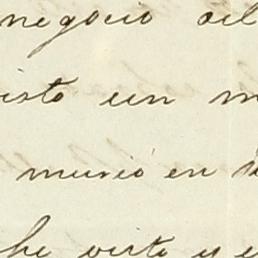 negocio del
isto un m
murió en
he visto y e